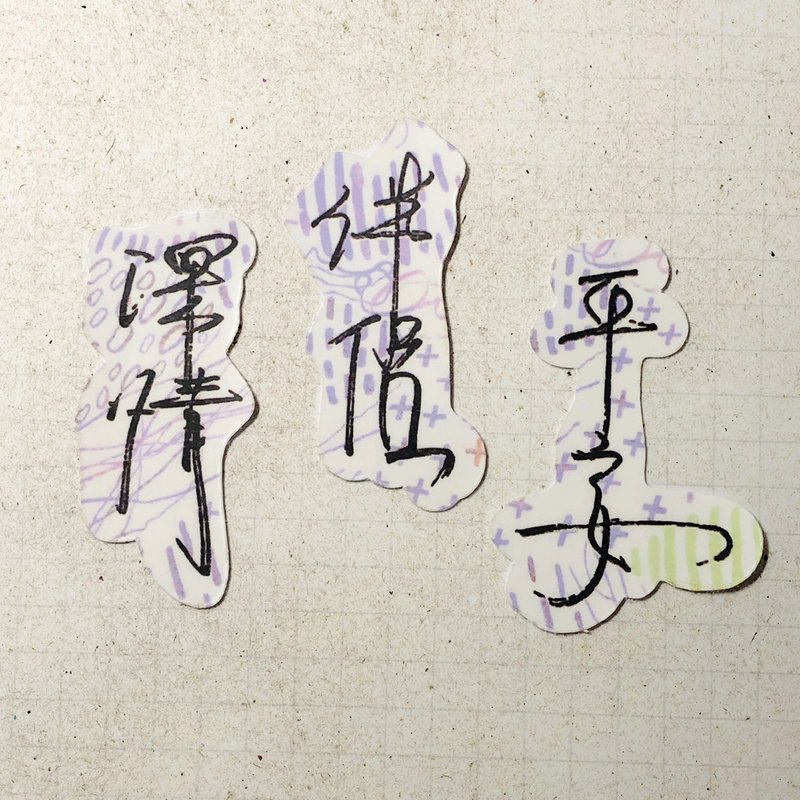 深情
伴侶
平安